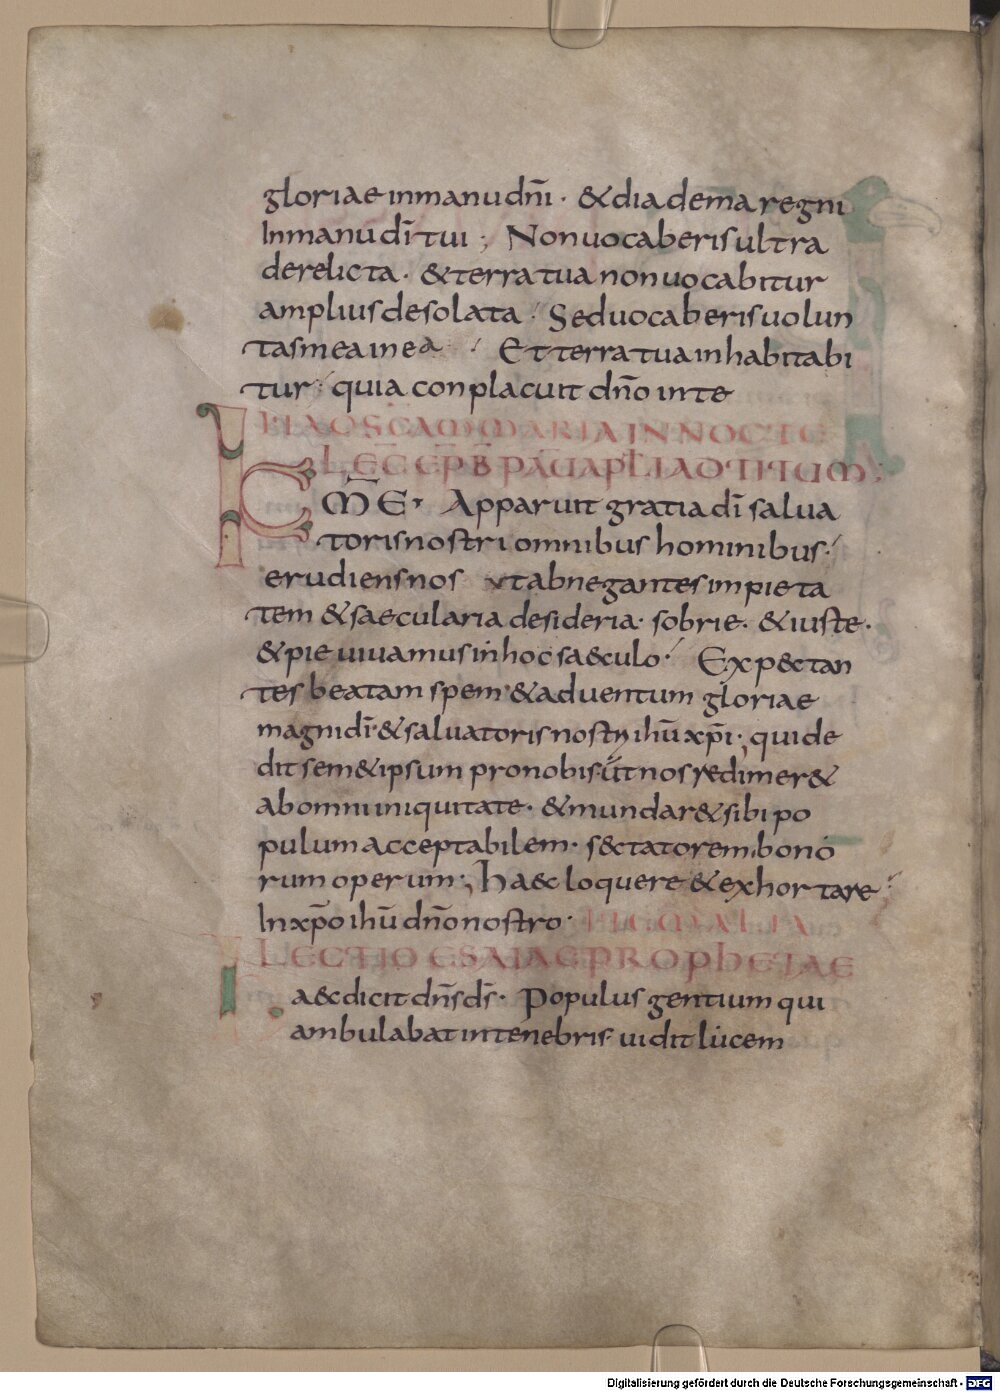 gloriae inmanu dn̄i · & diadema regni
Inmanu dī tui ; Non uocaberis ultra
derelicta · & terra tua non uocabitur
amplius desolata · Sed uocaberis uolun
tas mea in ea · Et terra tua inhabitabi
tur · quia conplacuit dn̄o in te
AD SCAM MARIA IN NOCTE
LEC EPB PAULI APLI AD TITUM ;
K ME · Apparuit gratia dī salua
toris nostri omnibus hominibus ·
erudiens nos ut abnegantes impieta
tem & saecularia desideria · sobrie · & iuste ·
& pie uiuamus in hoc saeculo · Exp&tan
tes beatam spem & aduentum gloriae
magni dī · & saluatoris nostri ihū xp̄i · qui de
dit sem&ipsum pro nobis · ut nos redimer&
ab omni iniquitate · & mundar& sibi po
pulum acceptabilem · s&tatorem bono
rum operum ; haec loquere & exhortare
In xp̄o ihū dn̄o nostro ·
LECTIO ESAIAE PROPHETAE
H aec dicit dn̄s ds̄ · Populus gentium qui
ambulabat in tenebris uidit lucem
Digitalisierung gefördert durch die Deutsche Forschungsgemeinschaft - DFG